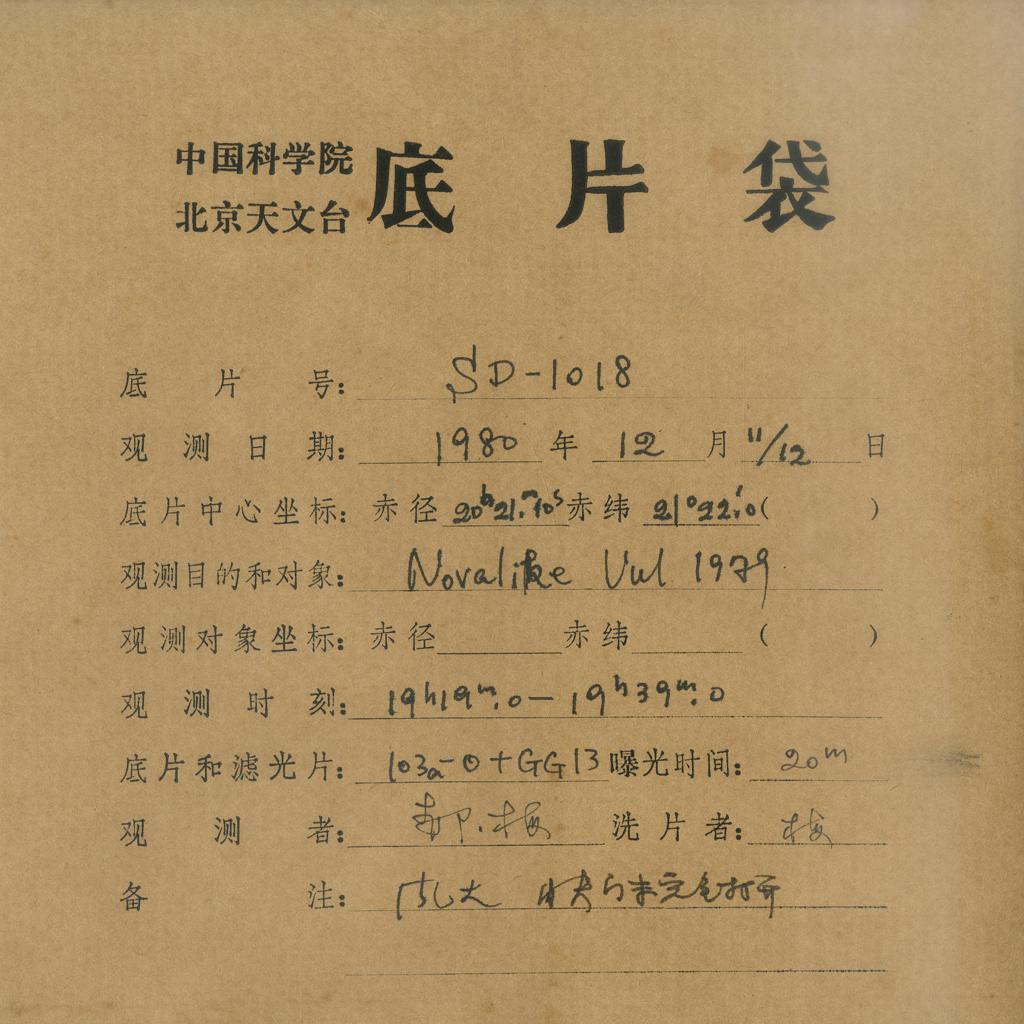 中国科学院
北京天文台
底片袋
底片号： SD-1018
观测日期： 1980 年 12 月 11/12 日
底片中心坐标： 赤径 20ʰ21ᵐ.10ˢ 赤纬 21°22′.0 ( )
观测目的和对象： Novalike Vul 1979
观测对象坐标： 赤径 赤纬 ( )
观测时刻： 19ʰ19ᵐ.0 — 19ʰ39ᵐ.0
底片和滤光片： 103a-O+GG13 曝光时间： 20ᵐ
观测者： 郝.梅 洗片者： 梅
备注： 风大 快门未完全打开